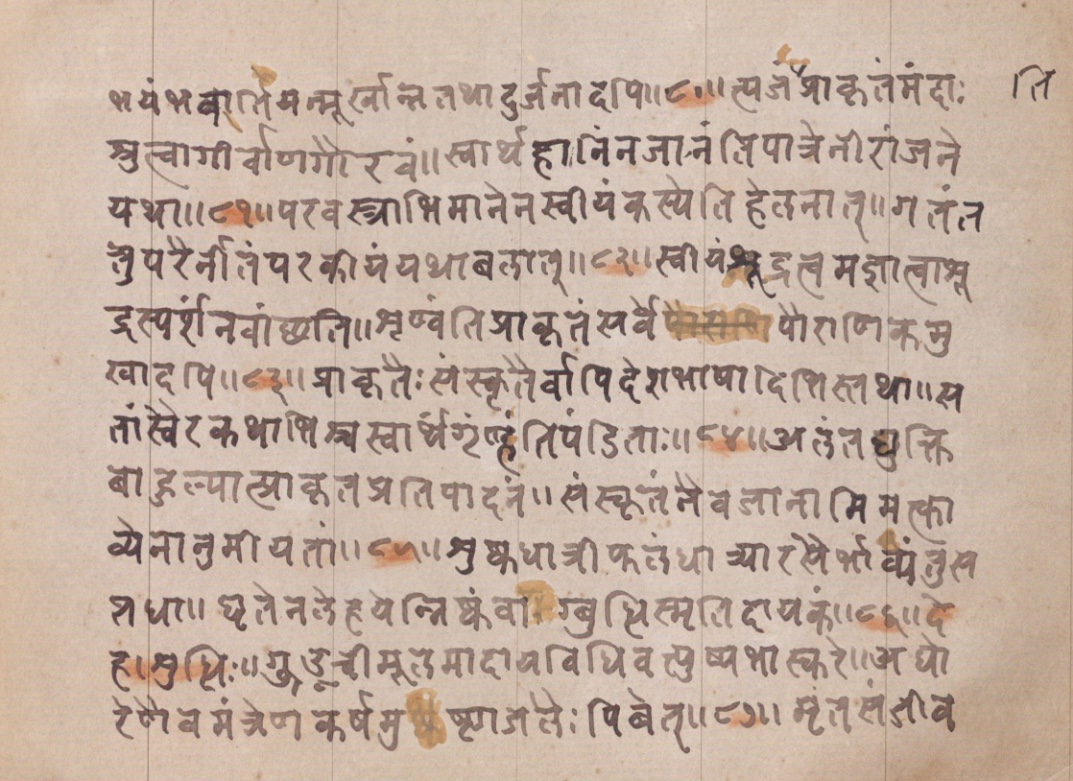 भयंभवातियन्मूर्खान्नतथादुर्जनादपि॥८१॥त्यजंप्राकृतंमंदाः ति
श्रुत्वागीर्वाणगौरवं॥स्वार्थहानिंनजानंतिपात्रेनीरांजने
यथा॥८२॥परवस्त्राभिमानेनस्वीयंकस्येतिहेलनात्॥गतंत
त्तुपरैर्नीतंपरकीयंयथाबलात्॥८२॥स्वीयंश्रूद्रत्वमज्ञात्वाश्रू
द्रस्पर्शंनवांछति॥शृण्वंतिप्राकृतंसर्वेपौराणिकमु
खादपि॥८३॥प्राकृतैःसंस्कृतैर्वापिदेशभाषादिभिस्तथा॥स
तांस्वैरकथाभिश्चस्वार्थंगृंण्हंतिपंडिताः॥८४॥अलंतद्युक्ति
बाहुल्यात्प्राकृतप्रतिपादनं॥संस्कृतंनैवजानामिमत्का
व्येनानुमीयतां॥८५॥श्रुष्कधात्रीफलंधात्र्यारसैर्भाव्यंतुस
प्तधा॥घृतेनलेहयेन्निष्कंवाग्बुधिस्मृतिदायकं॥८६॥दे
हशुधिः॥गुडूचीमूलमादायविधिवत्पुष्यभास्करे॥अघो
रेणैवमंत्रेणकर्षमुष्णजलैःपिबेत्॥८७॥मृंतसंजीव